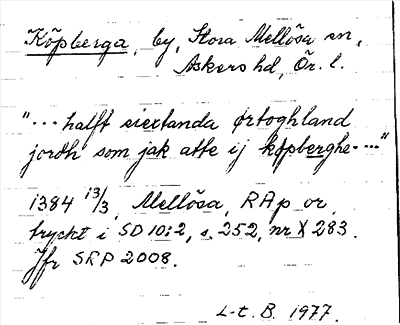 Köpberga, by, Stora Mellösa sn,
Askers hd, Ör. l.
"... halft siextanda ørtoghland
jordh som jak atte ij køpberghe ..."
1384 13/3, Mellösa, RAp or
tryckt i SD 10:2, s. 252, nr X 283.
Jfr SRP 2008.
L-t. B. 1977.